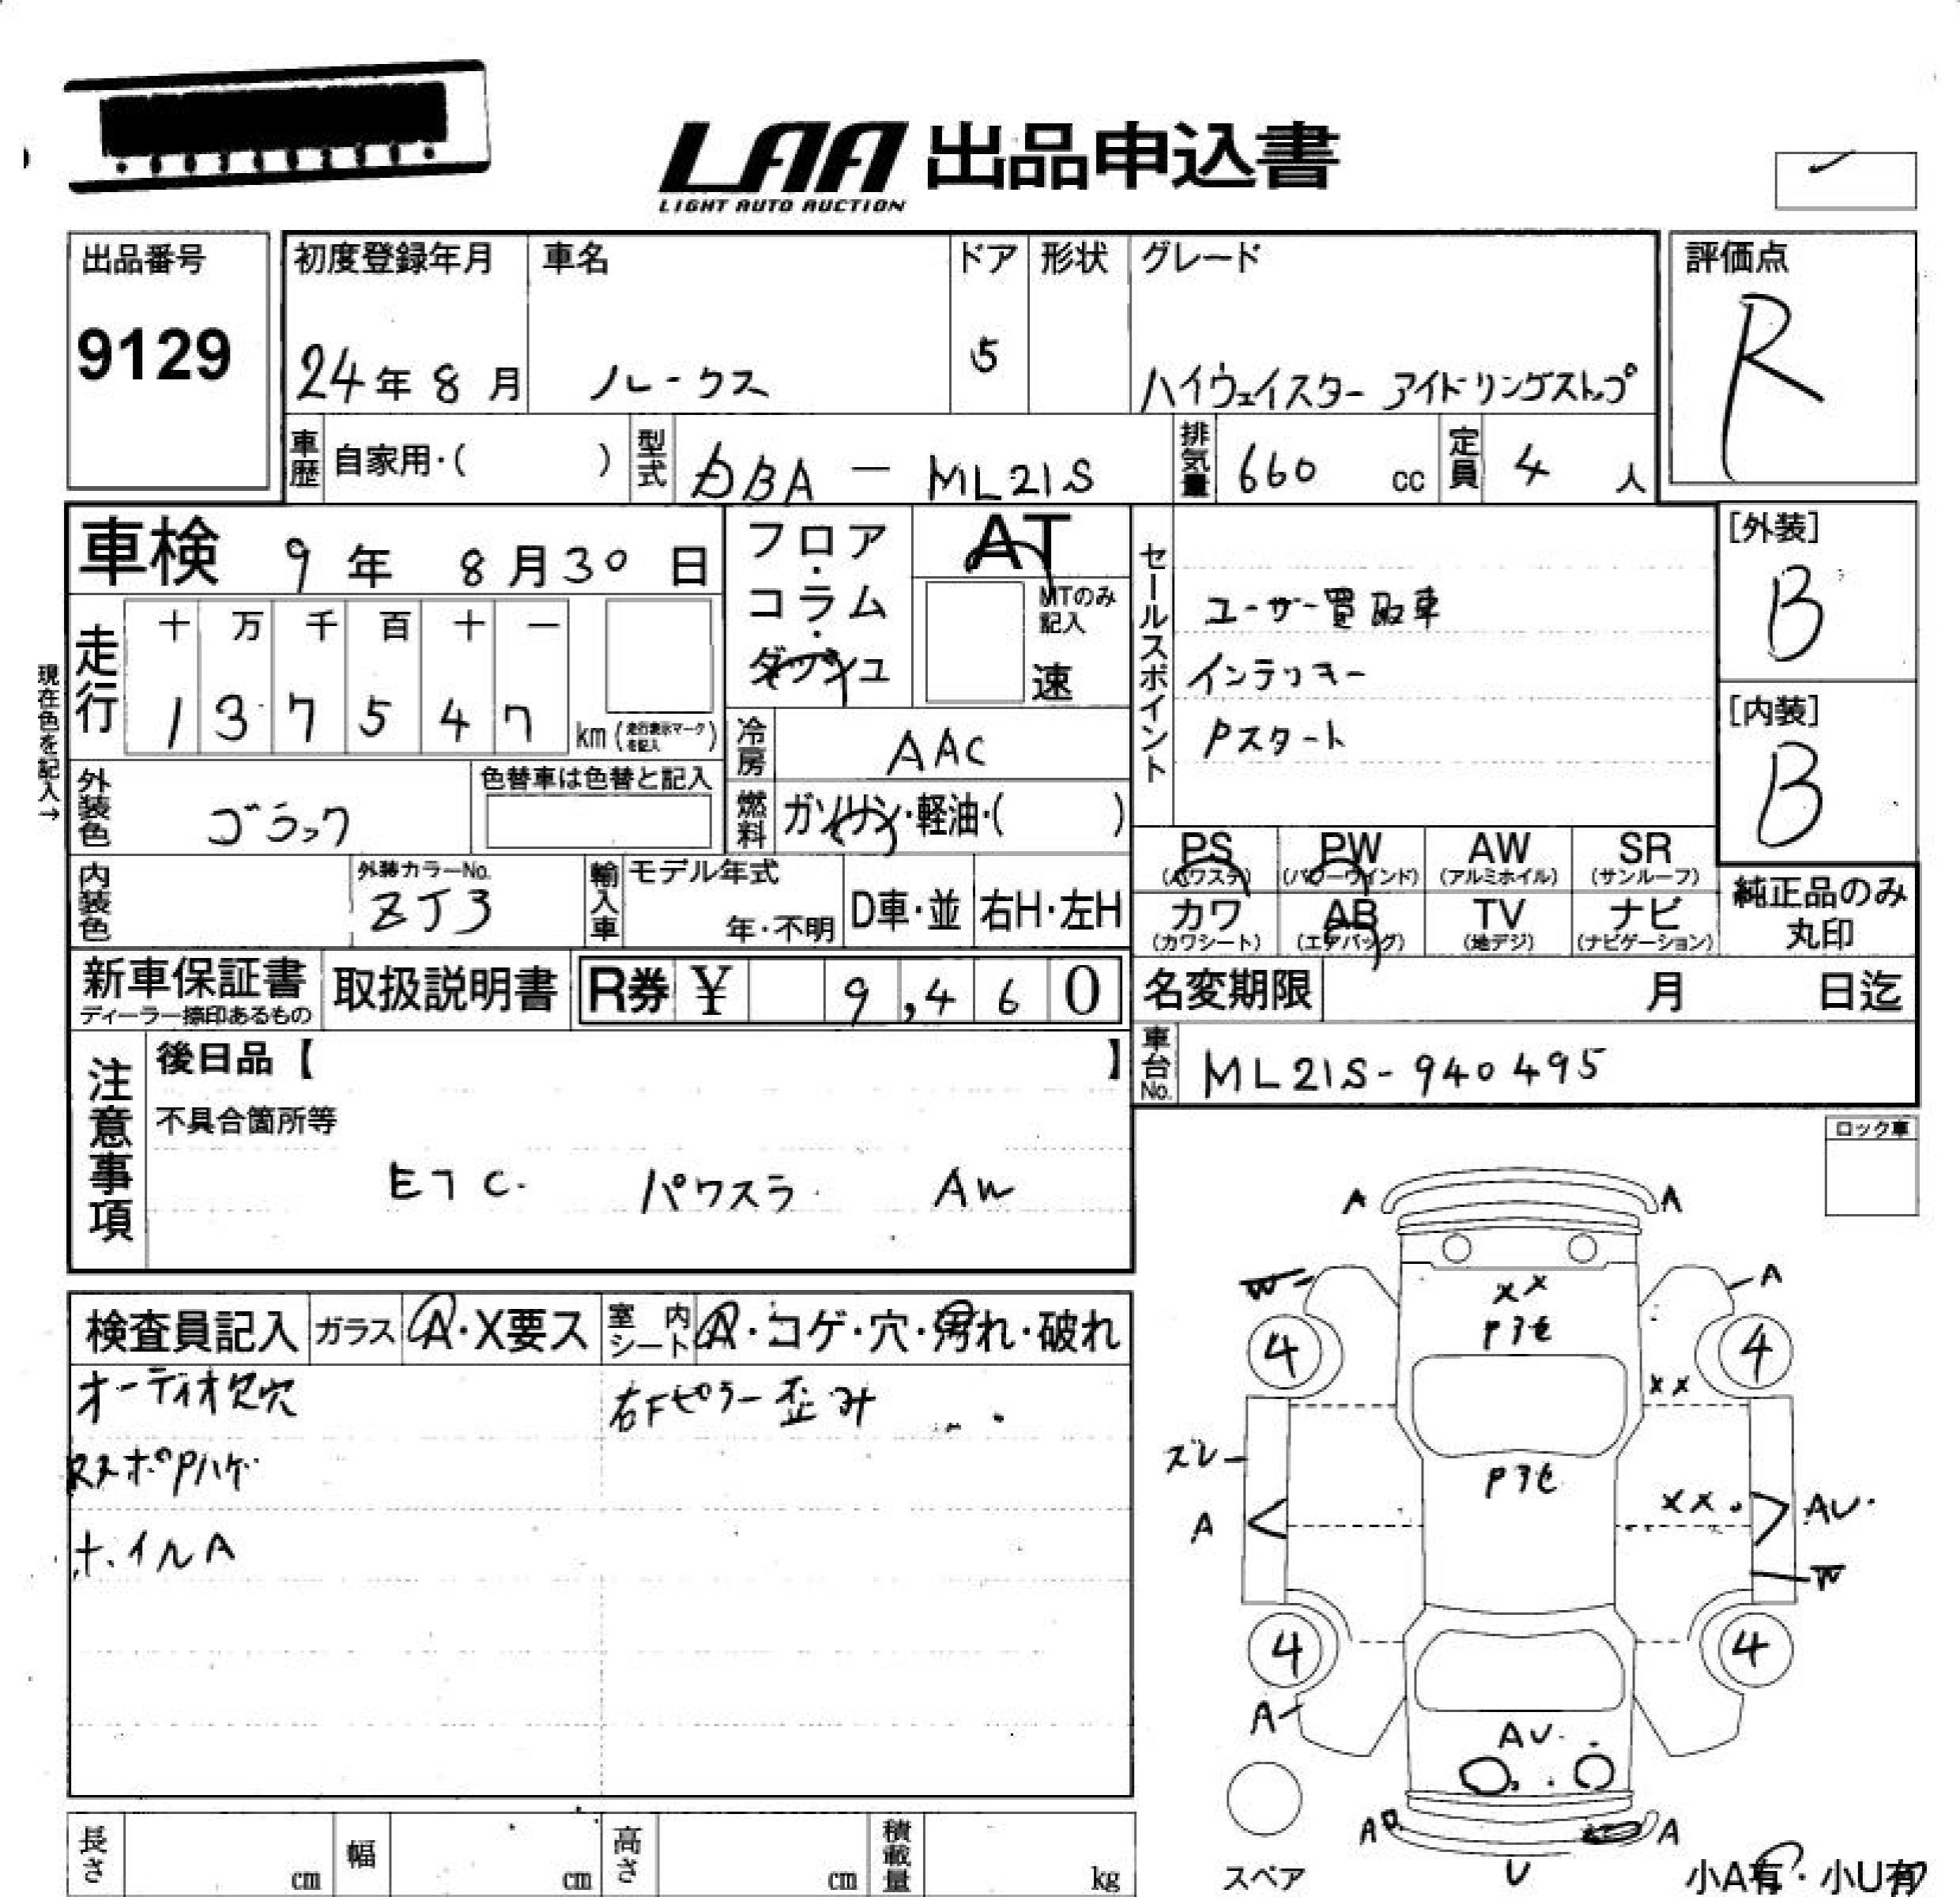 LAA 出品申込書
LIGHT AUTO AUCTION
出品番号
9129
初度登録年月 車名 ドア 形状 グレード
24年 8月 ルークス 5 ハイウェイスター アイドリングストップ
評価点
R
車歴 自家用・( ) 型式 DBA - ML21S 排気量 660 cc 定員 4 人
車検 9年 8月30日
フロア・コラム・ダッシュ
AT
MTのみ記入
速
セールスポイント
ユーザー買取車
インテリキー
Pスタート
[外装]
B
[内装]
B
現在色を記入→
走行 十 万 千 百 十 一
1 3 7 5 4 7 km (走行表示マークを記入)
冷房 AAC
外装色
色替車は色替と記入
燃料 ガソリン・軽油・( )
PS (パワステ) PW (パワーウインド) AW (アルミホイル) SR (サンルーフ)
カワ (カワシート) AB (エアバッグ) TV (地デジ) ナビ (ナビゲーション)
純正品のみ丸印
内装色 外装カラーNo. ZJ3 輸入車 モデル年式 年・不明 D車・並 右H・左H
新車保証書 ディーラー捺印あるもの 取扱説明書 R券 ¥ 9,460
名変期限 月 日迄
車台No. ML21S-940495
注意事項
後日品【 】
不具合箇所等
ETC. パワスラ AW
ロック車
検査員記入 ガラス A・X要ス 室内シート A・コゲ・穴・汚れ・破れ
オーディオ欠穴 右Fピラー歪み
RスポPハゲ
ホイルA
A A
W A
XX
Pアセ
4 4
XX
ズレ
Pアセ
XX AU
A
W
4 4
A
AU
A A
U
スペア
小A有・小U有
長さ cm 幅 cm 高さ cm 積載量 kg